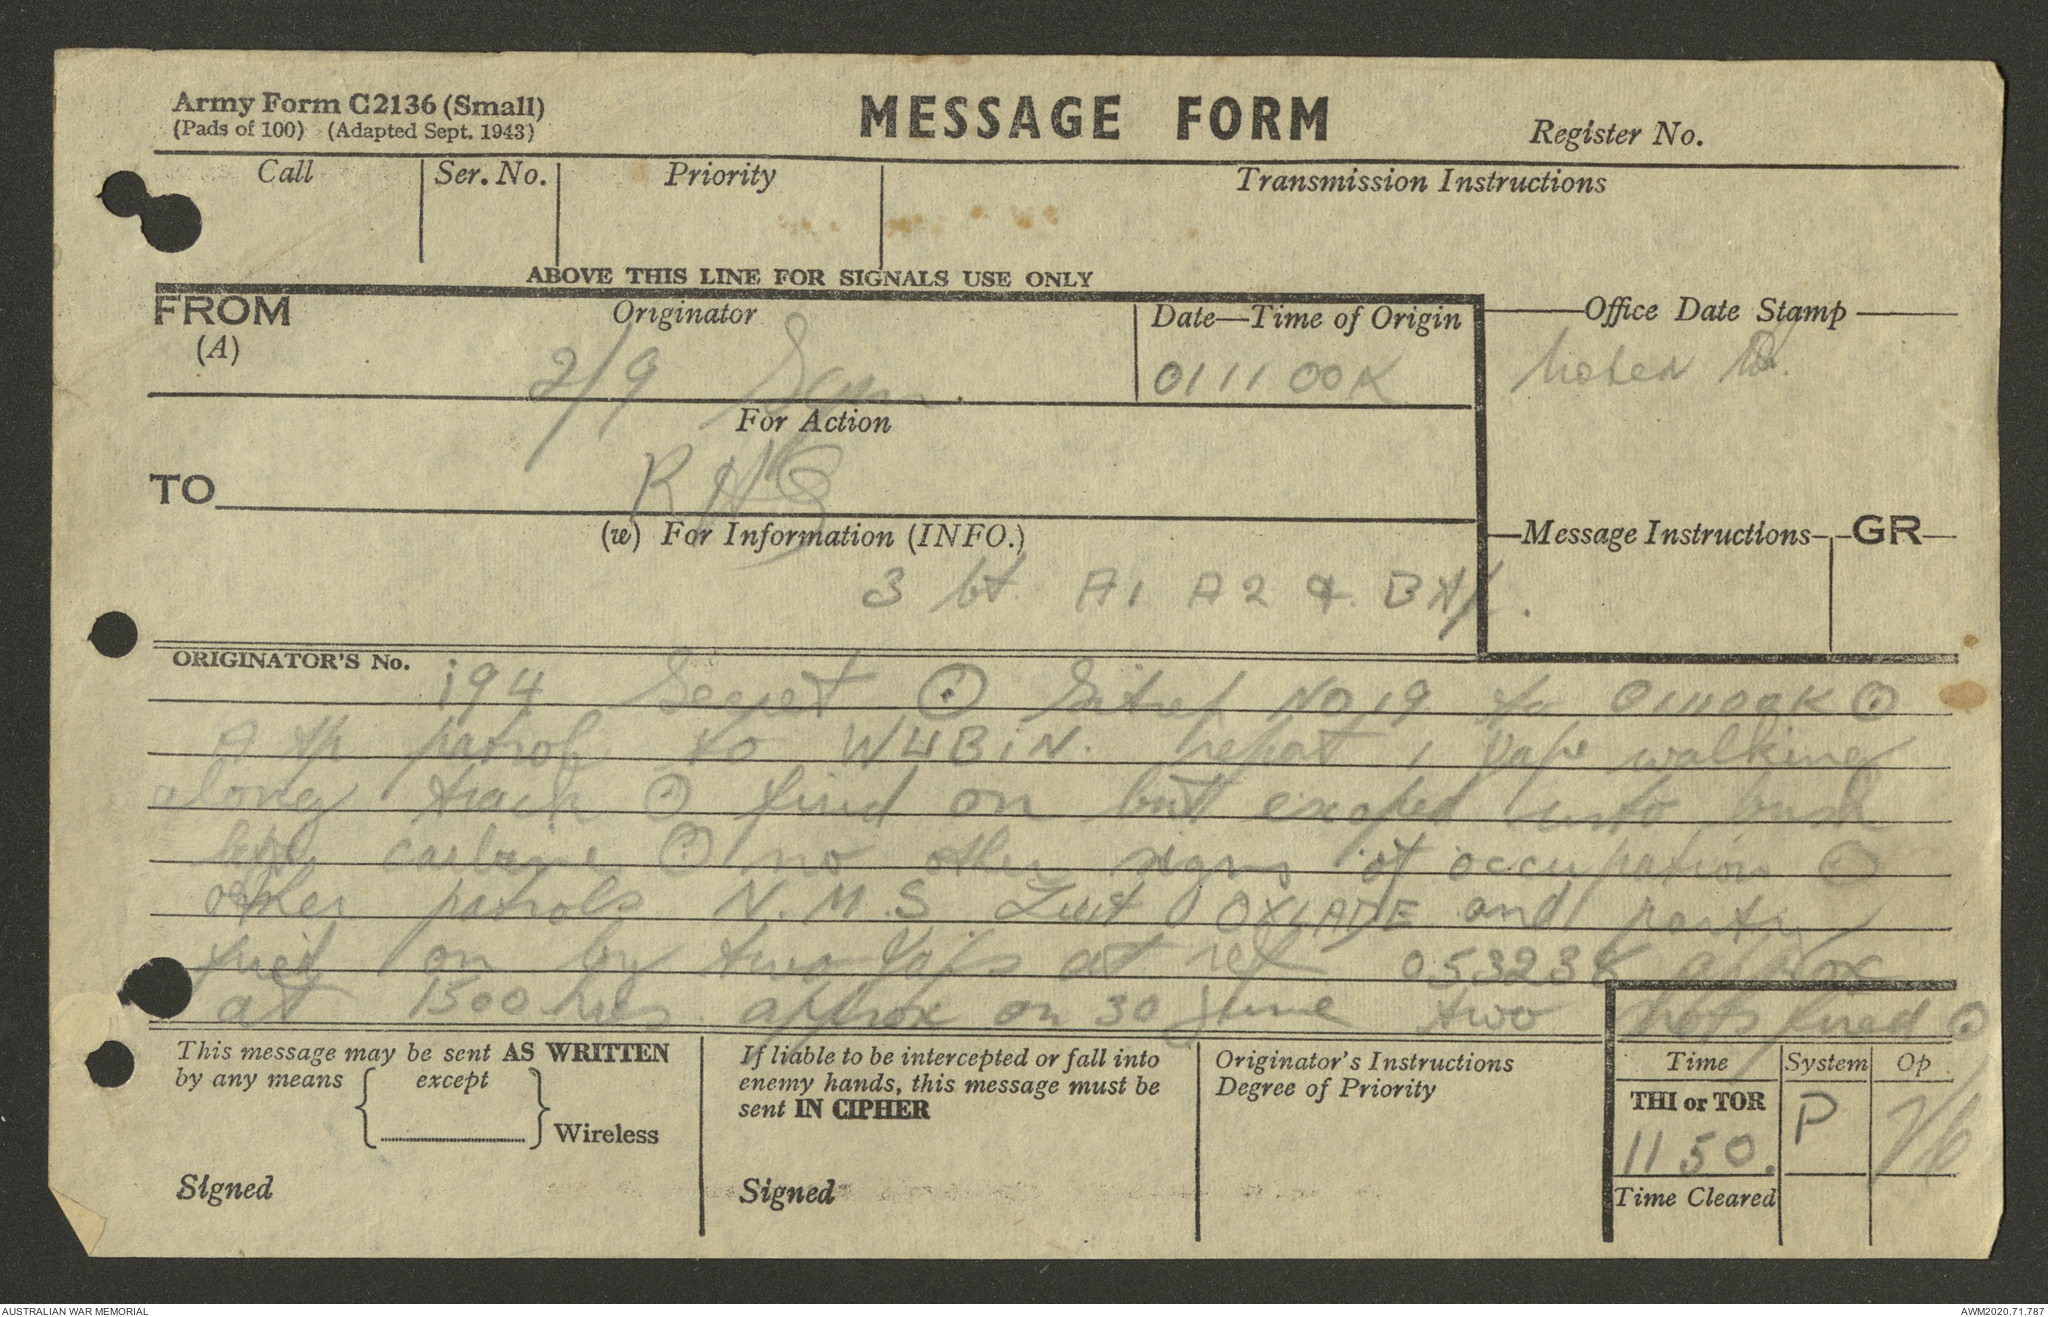 Army Form C2136 (Small)
(Pads of 100) (Adapted Sept. 1943)
MESSAGE FORM
Register No.
Call
Ser. No.
Priority
Transmission Instructions
ABOVE THIS LINE FOR SIGNALS USE ONLY
FROM
(A)
Originator
2/9
Date—Time of Origin
011100K
Office Date Stamp
For Action
TO
RHQ
(w) For Information (INFO.)
3 bt A1 A2 & B
Message Instructions
GR
ORIGINATOR'S No.
194 Secret ⊙ Sitrep No 19 to 011100K ⊙
A tp patrol to WUBIN. report 1 Jap walking
along track ⊙ fired on but escaped into bush
carbine ⊙ no other signs of occupation ⊙
other patrols N.M.S Lieut OXLADE and party
fired on by two Japs at ref 053238 approx
at 1500 hrs approx on 30 June two shots fired ⊙
This message may be sent AS WRITTEN
by any means except
Wireless
Signed
If liable to be intercepted or fall into
enemy hands, this message must be
sent IN CIPHER
Signed
Originator's Instructions
Degree of Priority
Time System Op
THI or TOR
1150. P
Time Cleared
AUSTRALIAN WAR MEMORIAL
AWM2020.71.787